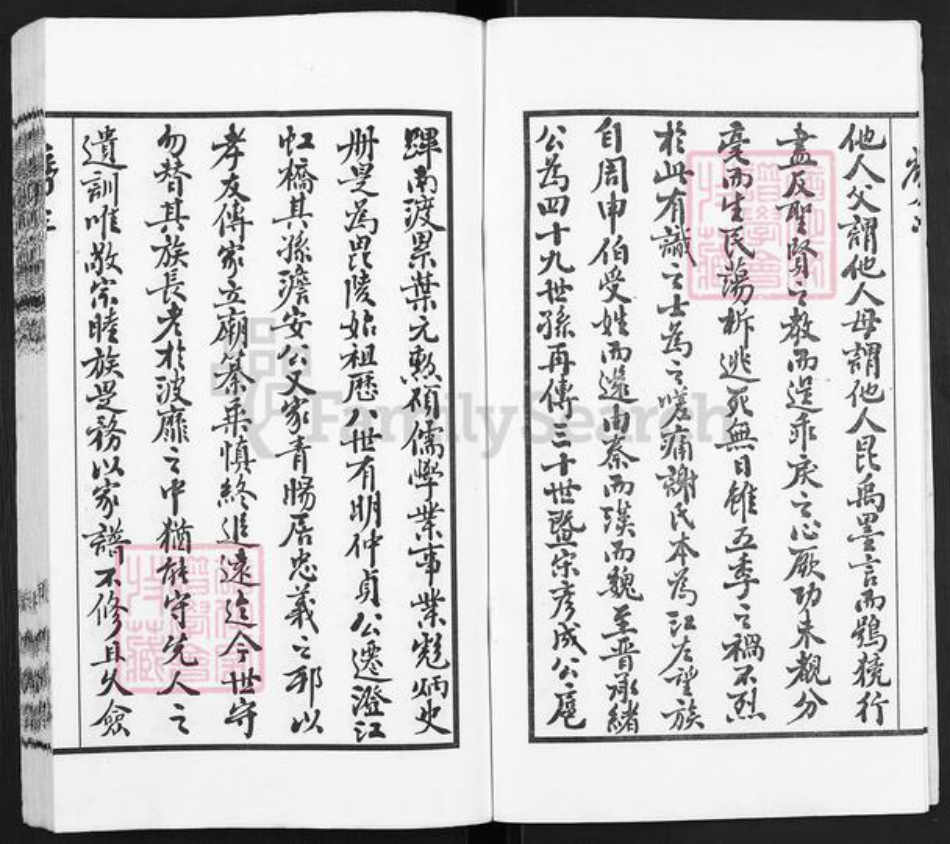 他人父謂他人母謂他人昆禹墨言而鴞獍行
盡反聖賢之教而逞乖戾之心厥功未覩分
毫而生民蕩析逃死無日雖五季之禍不烈
於此有識之士為之嗟痛謝氏本為江左望族
自周申伯受姓而還由秦而漢而魏至晉承緒
公為四十九世孫再傳三十世暨宋彥成公扈
蹕南渡累葉元勲碩儒學業事業彪炳史
册是為毘陵始祖歷八世有明仲貞公遷澄江
虹橋其孫澹安公又家青暘居忠義之邦以
孝友傳家立廟纂乘慎終追遠迄今世守
勿替其族長老於波靡之中猶能守先人之
遺訓唯敬宗睦族是務以家譜不修且久僉
FamilySearch